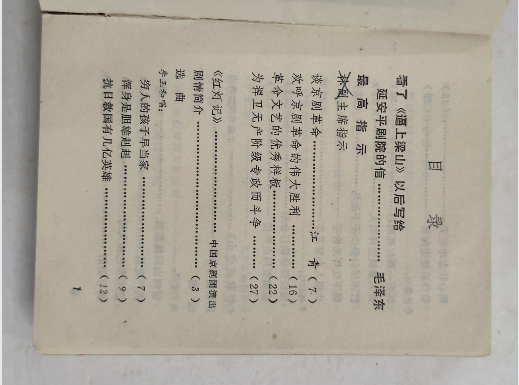 目 录
看了《逼上梁山》以后写给
延安平剧院的信…………… 毛泽东
最 高 指 示
林副主席指示
谈京剧革命……………………江 青(7)
欢呼京剧革命的伟大胜利…………(16)
革命文艺的优秀样板………………(22)
为捍卫无产阶级专政而斗争………(27)
《红灯记》………………… 中国京剧团演出
剧情简介……………………………(3)
选 曲
李玉和唱:
穷人的孩子早当家…………………(7)
浑身是胆雄赳赳……………………(9)
抗日救国有几亿英雄………………(12)
1